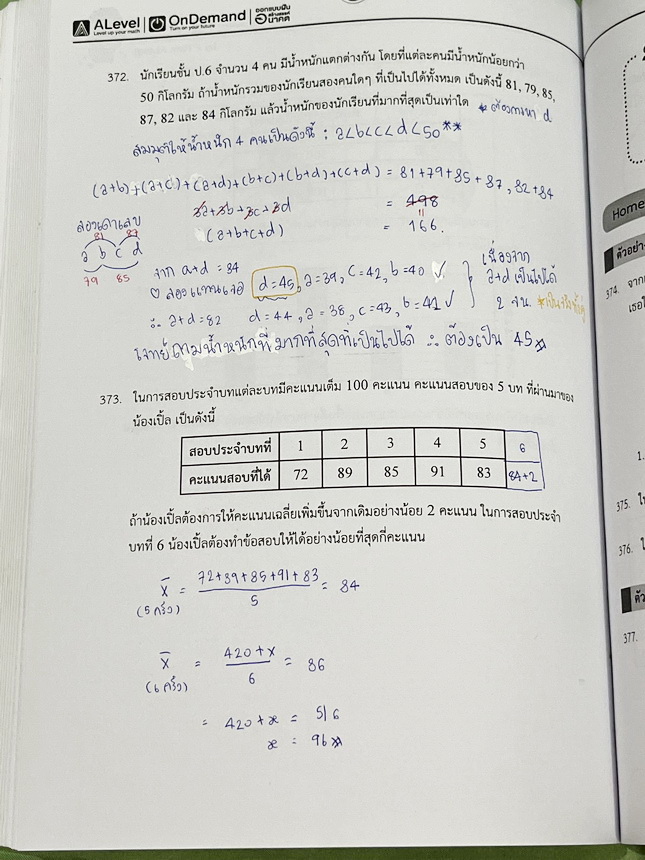 ALevel OnDemand ออกแบบฝัน สร้างสรรค์ อนาคต
Level up your math Turn on your future
372. นักเรียนชั้น ป.6 จำนวน 4 คน มีน้ำหนักแตกต่างกัน โดยที่แต่ละคนมีน้ำหนักน้อยกว่า
50 กิโลกรัม ถ้าน้ำหนักรวมของนักเรียนสองคนใดๆ ที่เป็นไปได้ทั้งหมด เป็นดังนี้ 81, 79, 85,
87, 82 และ 84 กิโลกรัม แล้วน้ำหนักของนักเรียนที่มากที่สุดเป็นเท่าใด * ต้องการหา d
สมมุติให้น้ำหนัก 4 คนเป็นดังนี้ : a<b<c<d<50**
(a+b)+(a+c)+(a+d)+(b+c)+(b+d)+(c+d) = 81+79+85+87, 82+84
3a+3b+3c+3d = 498
(a+b+c+d) = 166.
ลองเดาเลข
81 87
a b c d
79 85
จาก a+d = 84
ลองแทนเจอ d=45, a=39, c=42, b=40 ✓
∴ a+d=82 d=44, a=38, c=43, b=41 ✓
เนื่องจาก
a+d เป็นไปได้
2 จน.
โจทย์ถามน้ำหนักที่มากที่สุดที่เป็นไปได้ ∴ ต้องเป็น 45
373. ในการสอบประจำบทแต่ละบทมีคะแนนเต็ม 100 คะแนน คะแนนสอบของ 5 บท ที่ผ่านมาของ
น้องเปิ้ล เป็นดังนี้
สอบประจำบทที่ 1 2 3 4 5 6
คะแนนสอบที่ได้ 72 89 85 91 83 84+2
ถ้าน้องเปิ้ลต้องการให้คะแนนเฉลี่ยเพิ่มขึ้นจากเดิมอย่างน้อย 2 คะแนน ในการสอบประจำ
บทที่ 6 น้องเปิ้ลต้องทำข้อสอบให้ได้อย่างน้อยที่สุดกี่คะแนน
x̄ = 72+89+85+91+83 / 5 = 84
(5 ครั้ง)
x̄ = 420+x / 6 = 86
(6 ครั้ง)
= 420+x = 516
x = 96
Home
ตัวอย่าง
374. จาก
เธอ
1.
375.
376.
ตัว
377.